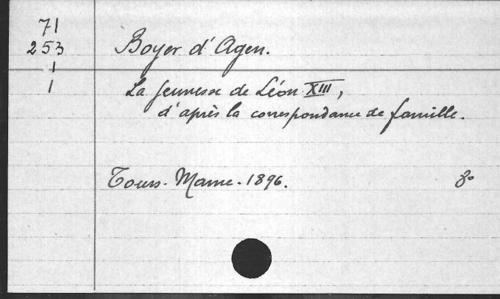 71
253
1
1
Boyer d'Agen.
La jeunesse de Léon XIII,
d'après la correspondance de famille.
Tours. Mame. 1896.
8°